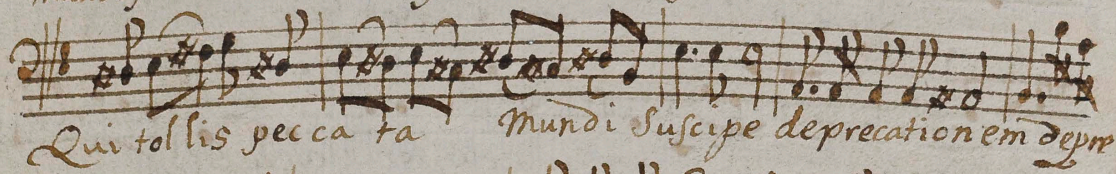 Qui tol lis pec ca ta Mundi Suscipe deprecationem depre